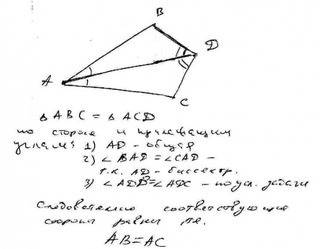 B
D
A
C
△ ABC = △ ACD
по стороне и прилежащим
углам: 1) AD - общая
2) ∠ BAD = ∠ CAD -
т.к. AD - биссектр.
3) ∠ ADB = ∠ ADC - по усл. задачи
Следовательно соответствующие
стороны равны т.е.
AB = AC